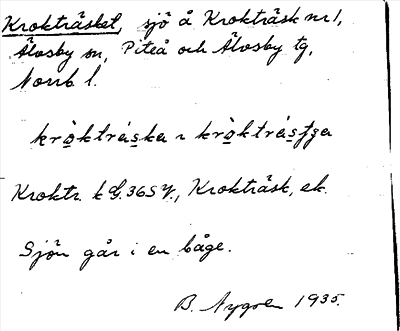 Krokträsket, sjö å Krokträsk nr 1,
Älvsby sn, Piteå och Älvsby tg,
Norrb l.
kròkträska ɿ kròkträsʃga
Kroktr. k G. 365 V., Krokträsk, ek.
Sjön går i en båge.
B. Nygren 1935.